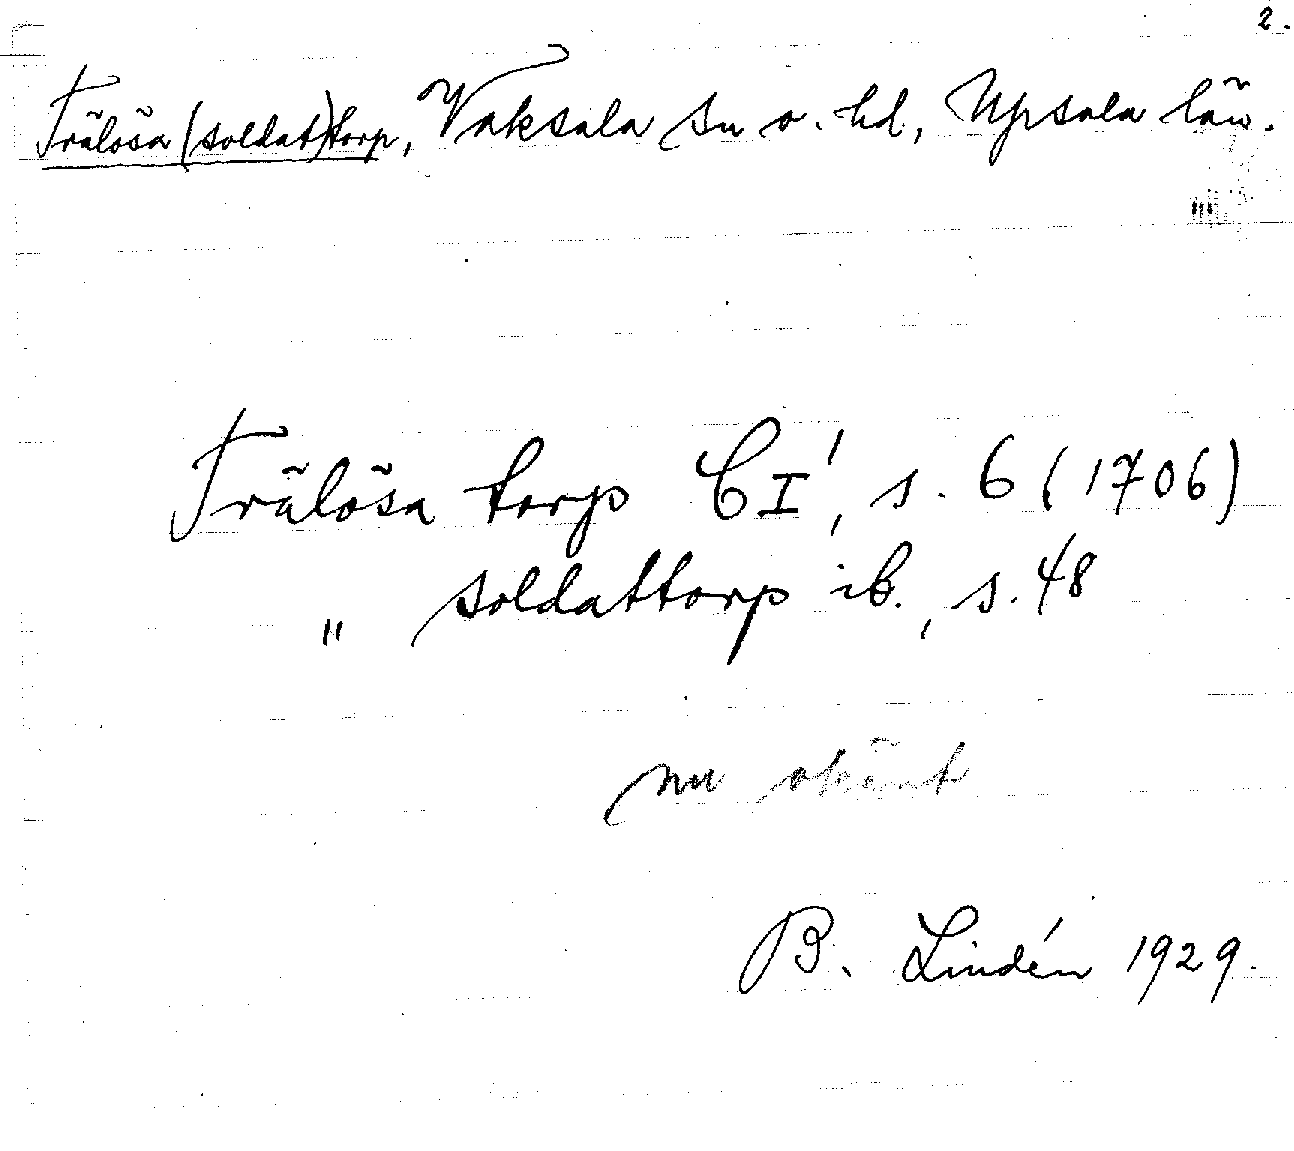 2.
Trälösa (soldat)torp, Vaksala sn o. hd, Upsala län.
Trälösa torp CI', s. 6 (1706)
" soldattorp ib., s. 48
nu okänt
B. Lindén 1929.